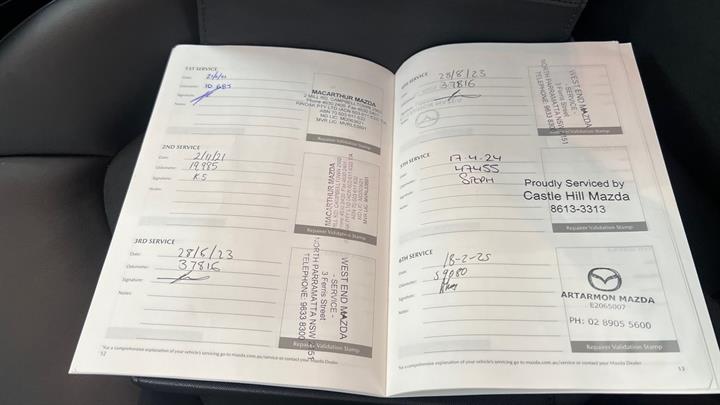 1ST SERVICE
Date:
Odometer: 10 685
Signature:
Notes:
MACARTHUR MAZDA
Repairer Validation Stamp
2ND SERVICE
Date: 2/11/21
Odometer: 19,985
Signature: KS
Notes:
MACARTHUR MAZDA
Repairer Validation Stamp
3RD SERVICE
Date: 28/6/23
Odometer: 37816
Signature:
Notes:
WEST END MAZDA
- SERVICE -
3 Ferris Street
NORTH PARRAMATTA NSW
TELEPHONE: 9633 8300
Repairer Validation Stamp
*For a comprehensive explanation of your vehicle's servicing go to mazda.com.au/service or contact your Mazda Dealer.
12
SERVICE
28/6/23
37816
WEST END MAZDA
SERVICE
3 Ferris Street
NORTH PARRAMATTA NSW
Repairer Validation Stamp
5TH SERVICE
Date: 17-4-24
Odometer: 47455
Signature: STEPH
Notes:
Proudly Serviced by
Castle Hill Mazda
8613-3313
Repairer Validation Stamp
6TH SERVICE
Date: 18-2-25
Odometer: 59080
Signature:
Notes:
ARTARMON MAZDA
E2065007
PH: 02 8905 5600
Repairer Validation Stamp
*For a comprehensive explanation of your vehicle's servicing go to mazda.com.au/service or contact your Mazda Dealer.
13